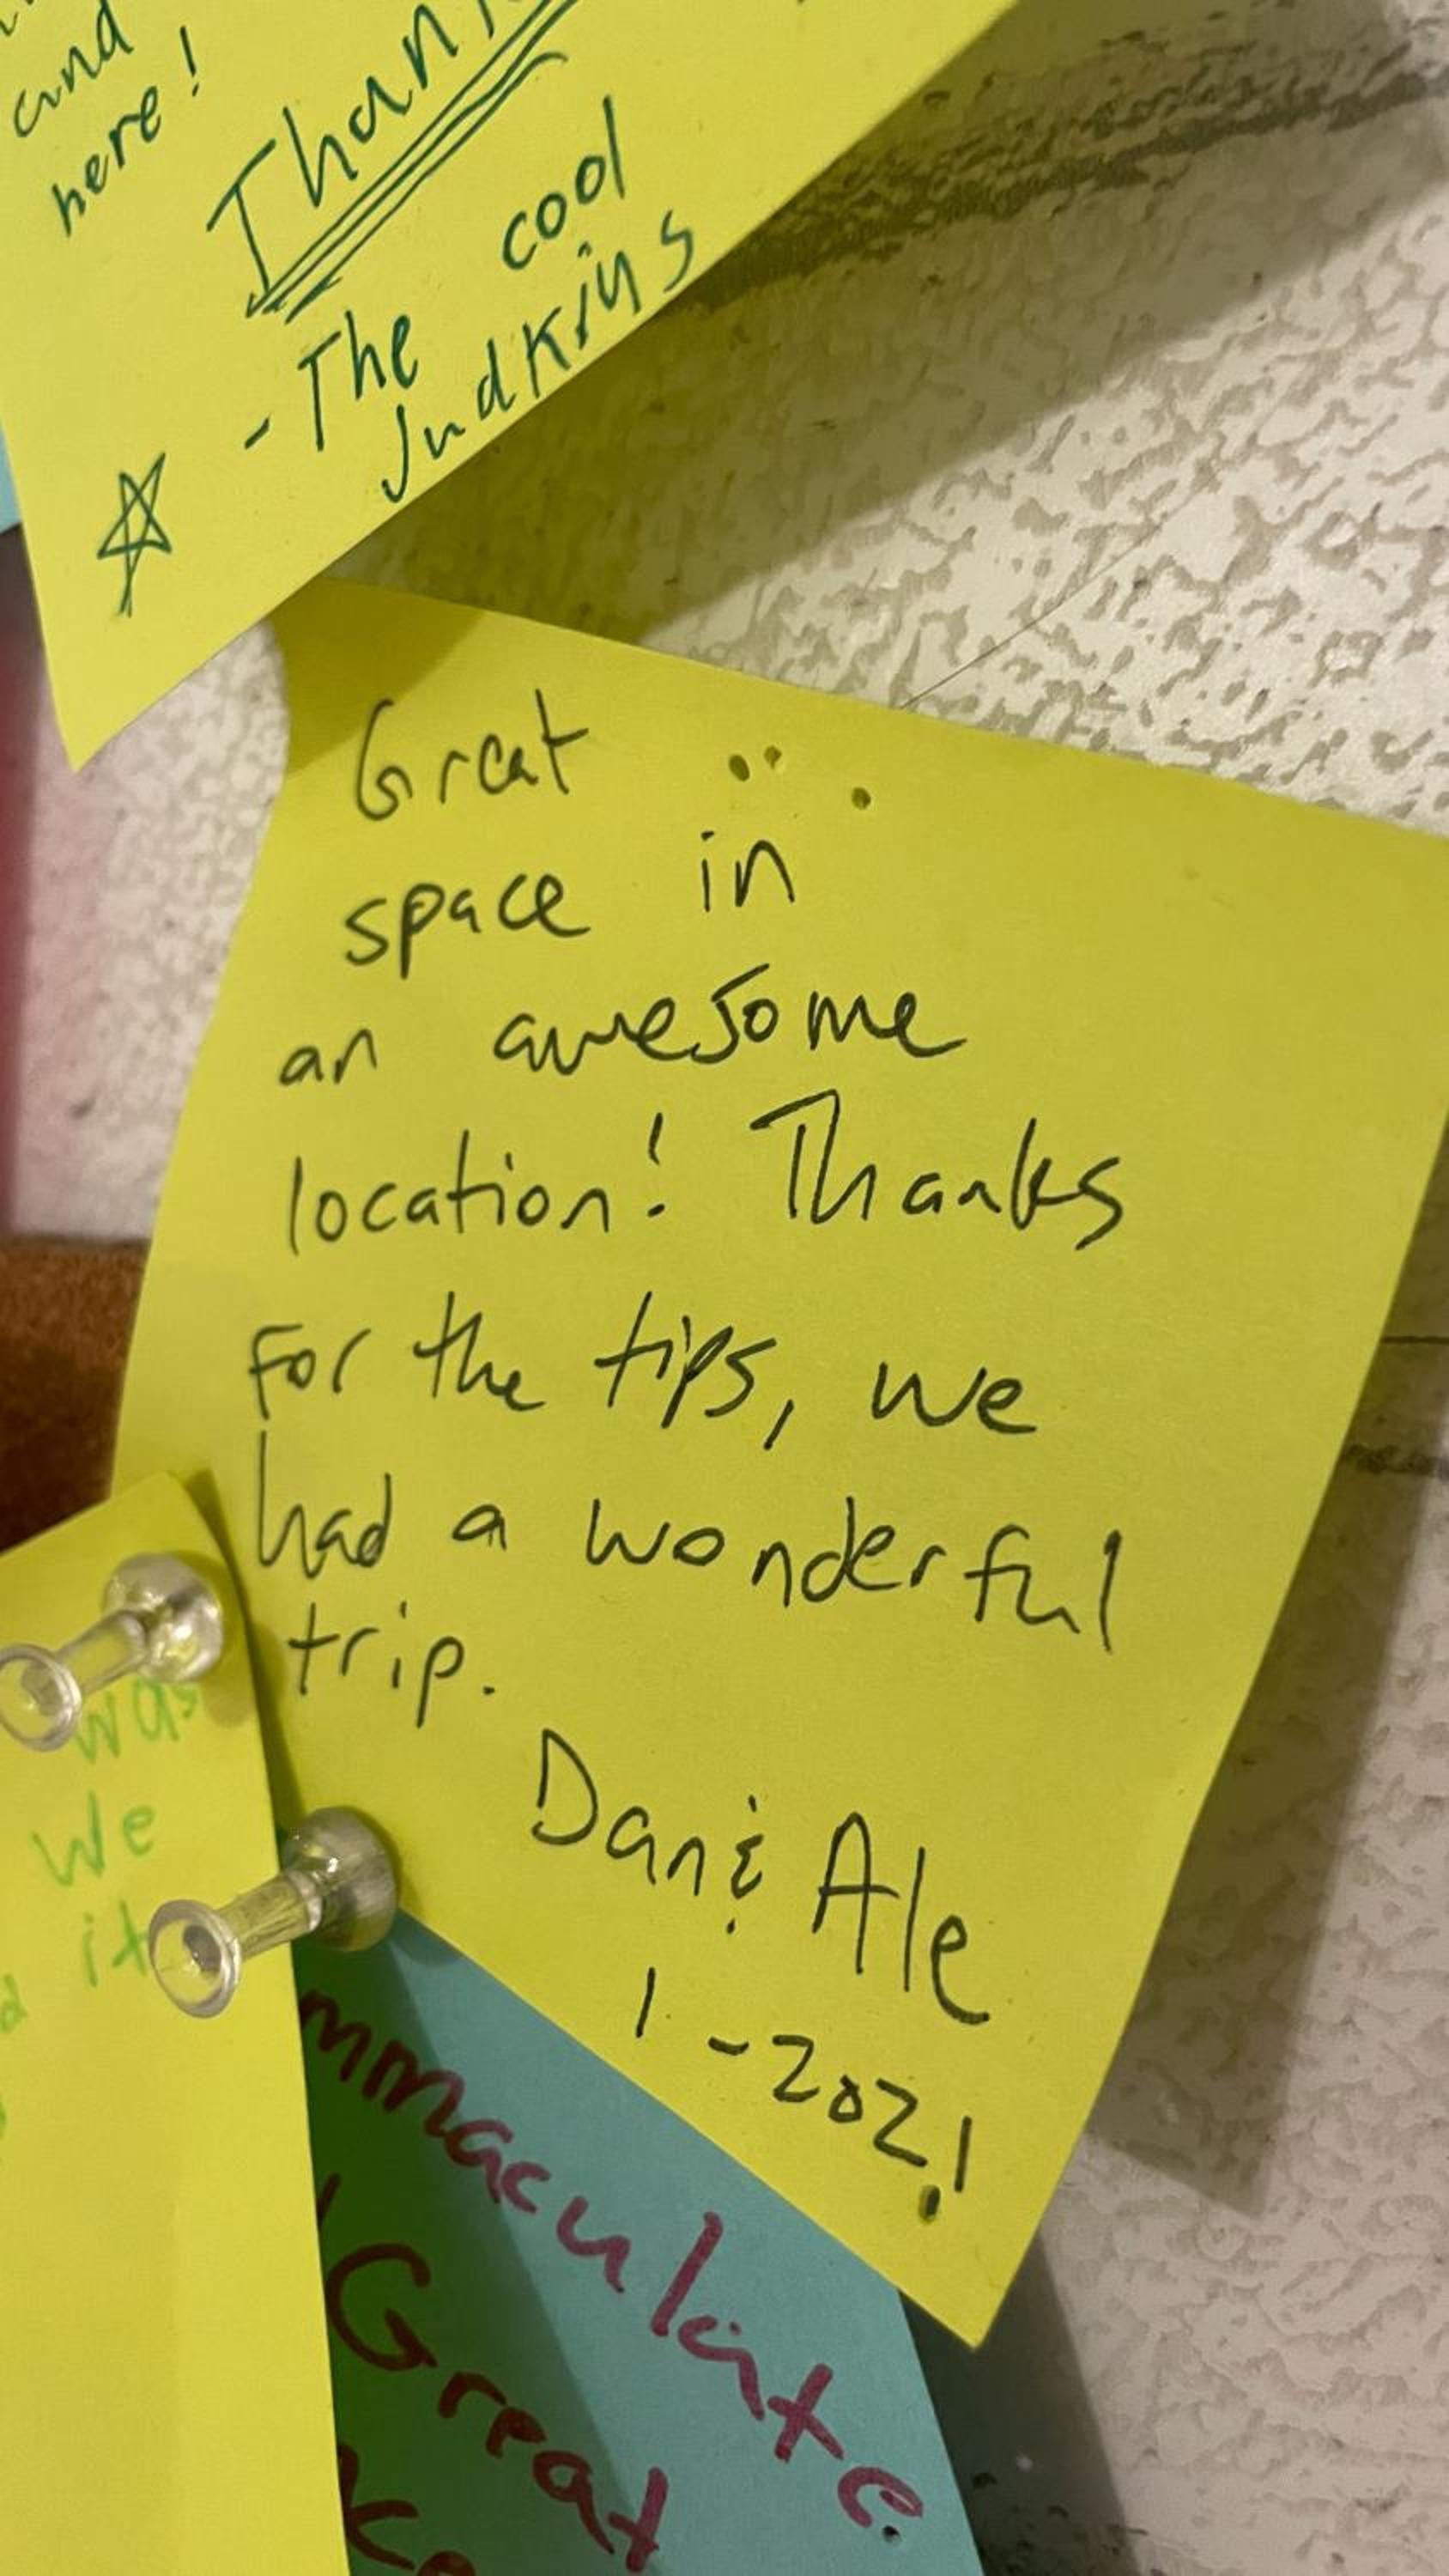 and
here!
Thank
- The cool
Judkins
Great
space in
an awesome
location! Thanks
For the tips, we
had a wonderful
trip.
Dan & Ale
1-2021
was
We
it
mmaculate
Great